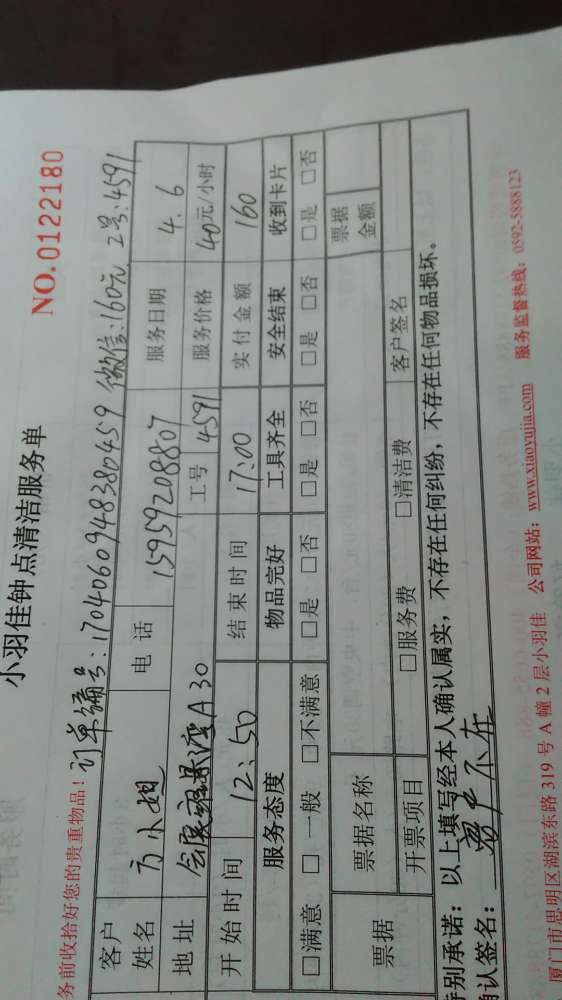 小羽佳钟点清洁服务单
NO.0122180
务前收拾好您的贵重物品! 订单编号:1704060948380459 微信:160元 工号:4591
客户姓名 方小姐 电话 15959208807 服务日期 4.6
地址 A30 工号 4591 服务价格 40元/小时
开始时间 12:50 结束时间 17:00 实付金额 160
服务态度 物品完好 工具齐全 安全结束 收到卡片
□满意 □一般 □不满意 □是 □否 □是 □否 □是 □否 □是 □否
票据 票据名称 票据金额
开票项目 □服务费 □清洁费 客户签名
特别承诺:以上填写经本人确认属实,不存在任何纠纷,不存在任何物品损坏。
确认签名: 客户不在
厦门市思明区湖滨东路319号A幢2层小羽佳 公司网站:www.xiaoyujia.com 服务监督热线:0592-5888123